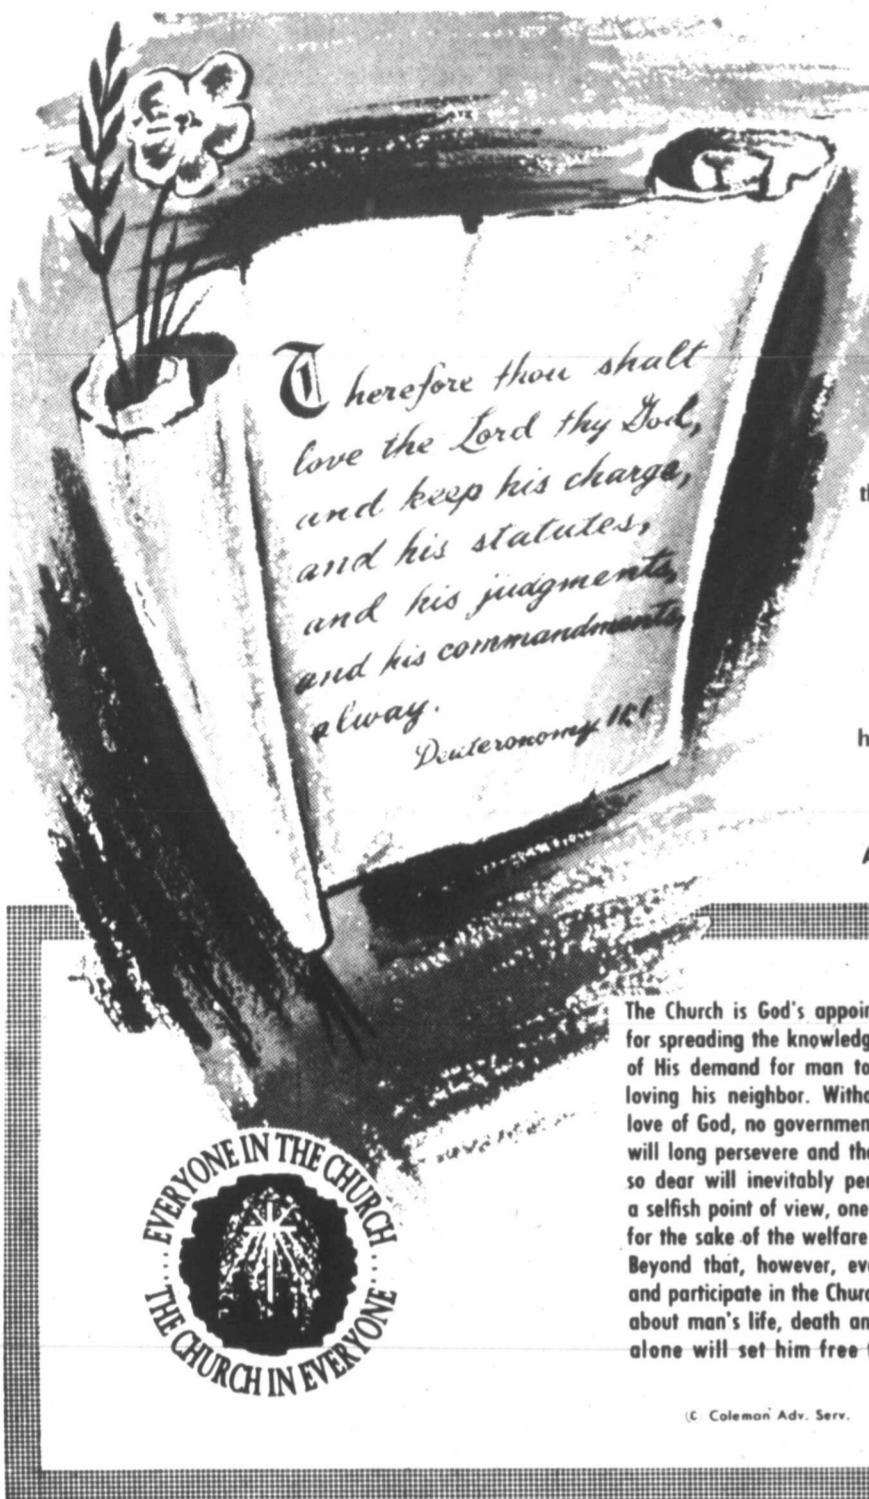 Therefore thou shalt
love the Lord thy God,
and keep his charge,
and his statutes,
and his judgments,
and his commandments,
alway.
Deuteronomy 11:1
th
h
A
The Church is God's appoin
for spreading the knowledg
of His demand for man to
loving his neighbor. Witho
love of God, no governmen
will long persevere and the
so dear will inevitably per
a selfish point of view, one
for the sake of the welfare
Beyond that, however, eve
and participate in the Churc
about man's life, death an
alone will set him free
EVERYONE IN THE CHURCH
THE CHURCH IN EVERYONE
(C) Coleman Adv. Serv.